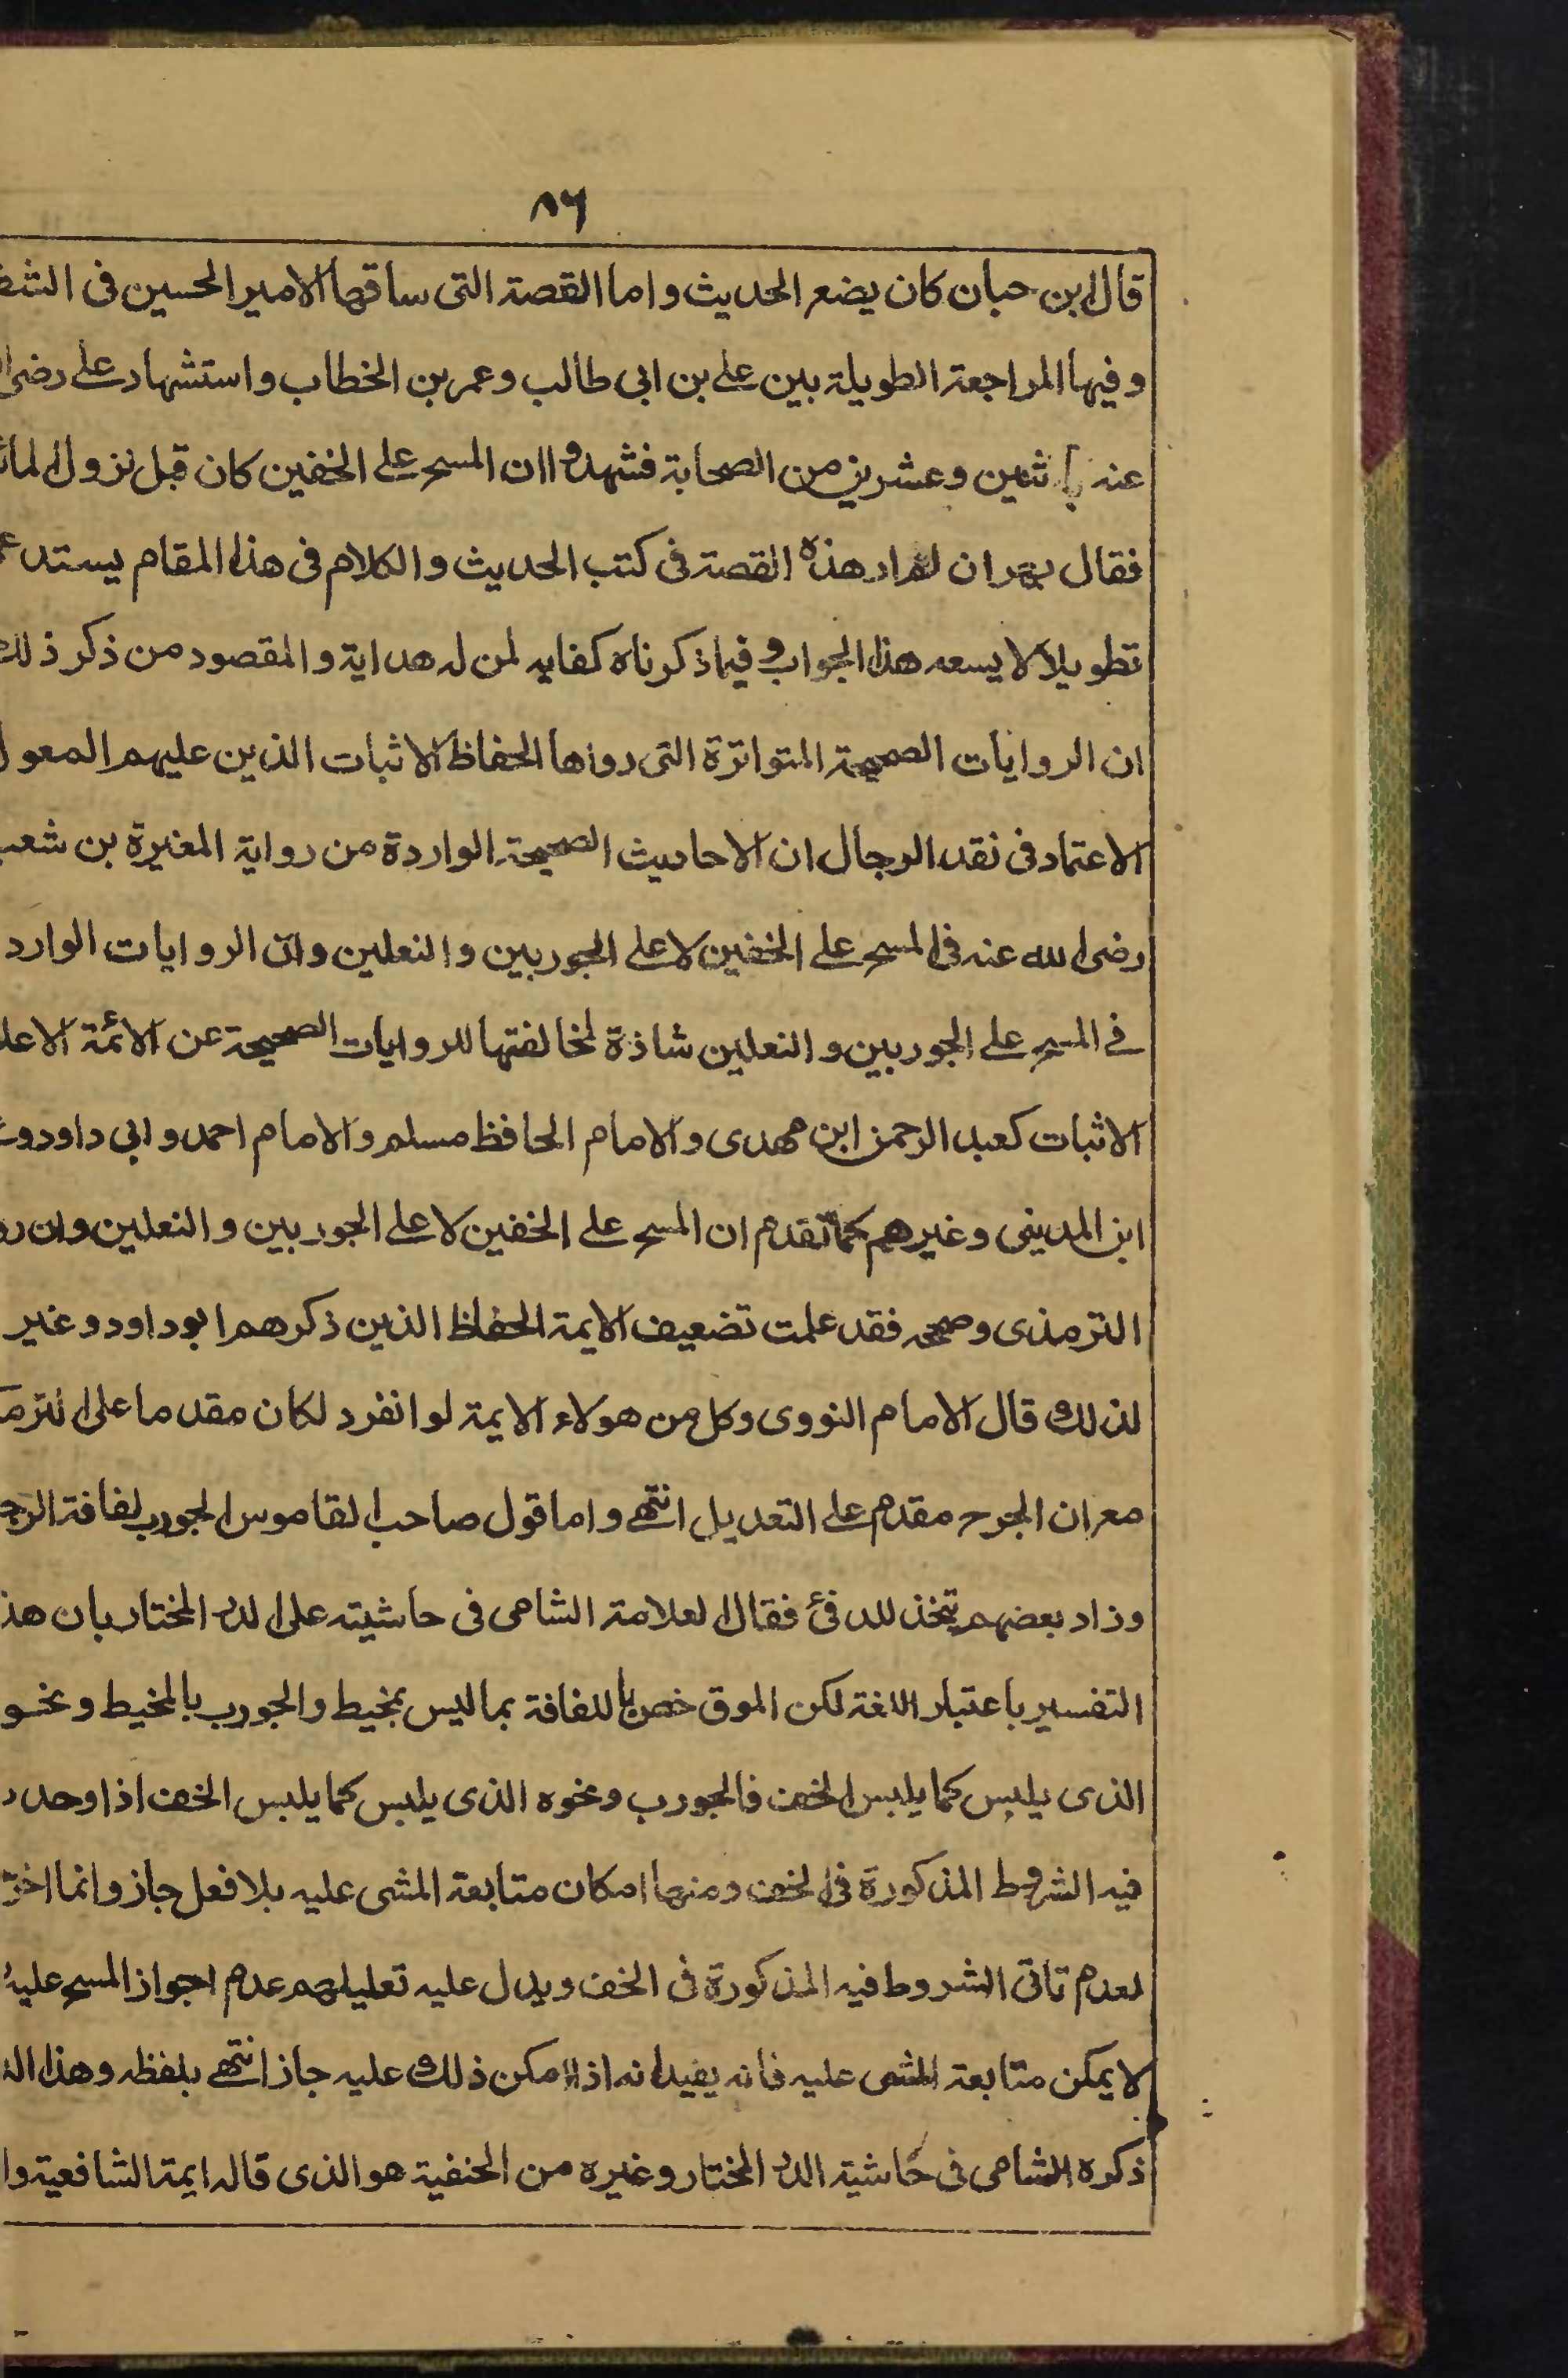 ٨٦
قال ابن حبان كان يضع الحديث واما القصة التى ساقها الامير الحسين فى
وفيها المراجعة الطويلة بين على بن ابى طالب وعمر بن الخطاب واستشهاد على رضى
عنه اثنين وعشرين من الصحابة فشهدوا ان المسح على الخفين كان قبل نزول
فقال ان هذه القصة فى كتب الحديث والكلام فى هذا المقام
تطويلا لا يسعه هذا الجواب وفيما ذكرناه كفايه لمن له هداية والمقصود من ذكر ذلك
ان الروايات الصحيحة المتواترة التى رواها الحفاظ الاثبات الذين عليهم المعول
الاعتماد فى نقد الرجال ان الاحاديث الصحيحة الواردة من رواية المغيرة بن
رضى الله عنه فى المسح على الخفين لا على الجوربين والنعلين وان الروايات الوارد
فے المسح على الجوربين والنعلين شاذة لمخالفتها للروايات الصحيحة عن الائمة
الاثبات كعبد الرحمن ابن مهدى والامام الحافظ مسلم والامام احمد وابى داود
ابن المدينى وغيرهم كما تقدم ان المسح على الخفين لا على الجوربين والنعلين وان
الترمذى وصححه فقد علمت تضعيف الايمة الحفاظ الذين ذكرهم ابو داود وغير
لذلك قال الامام النووى وكل من هولاء الايمة لو انفرد لكان مقدما على
مع ان الجرح مقدم على التعديل انتهے واما قول صاحب القاموس الجورب لفافة
وزاد بعضهم يتخذ للدفئ فقال العلامة الشامى فى حاشيته على الدر المختار بان
التفسير باعتبار اللغة لكن خص اللفافة بما ليس بمخيط والجورب بالمخيط ونحو
الذى يلبس كما يلبس الخف فالجورب ونحوه الذى يلبس كما يلبس الخف اذا وجد
فيه الشروط المذكورة فى الخف ومنها امكان متابعة المشى عليه بلا فعل جاز وانما
لعدم تاتى الشروط فيه المذكورة فى الخف ويدل عليه تعليلهم عدم اجواز المسح عليه
لا يمكن متابعة المشى عليه فانه يفيد انه اذا امكن ذلك عليه جاز انتهے بلفظه وهذا
ذكره الشامى فى حاشية الدر المختار وغيره من الحنفية هو الذى قاله ايمة الشافعية